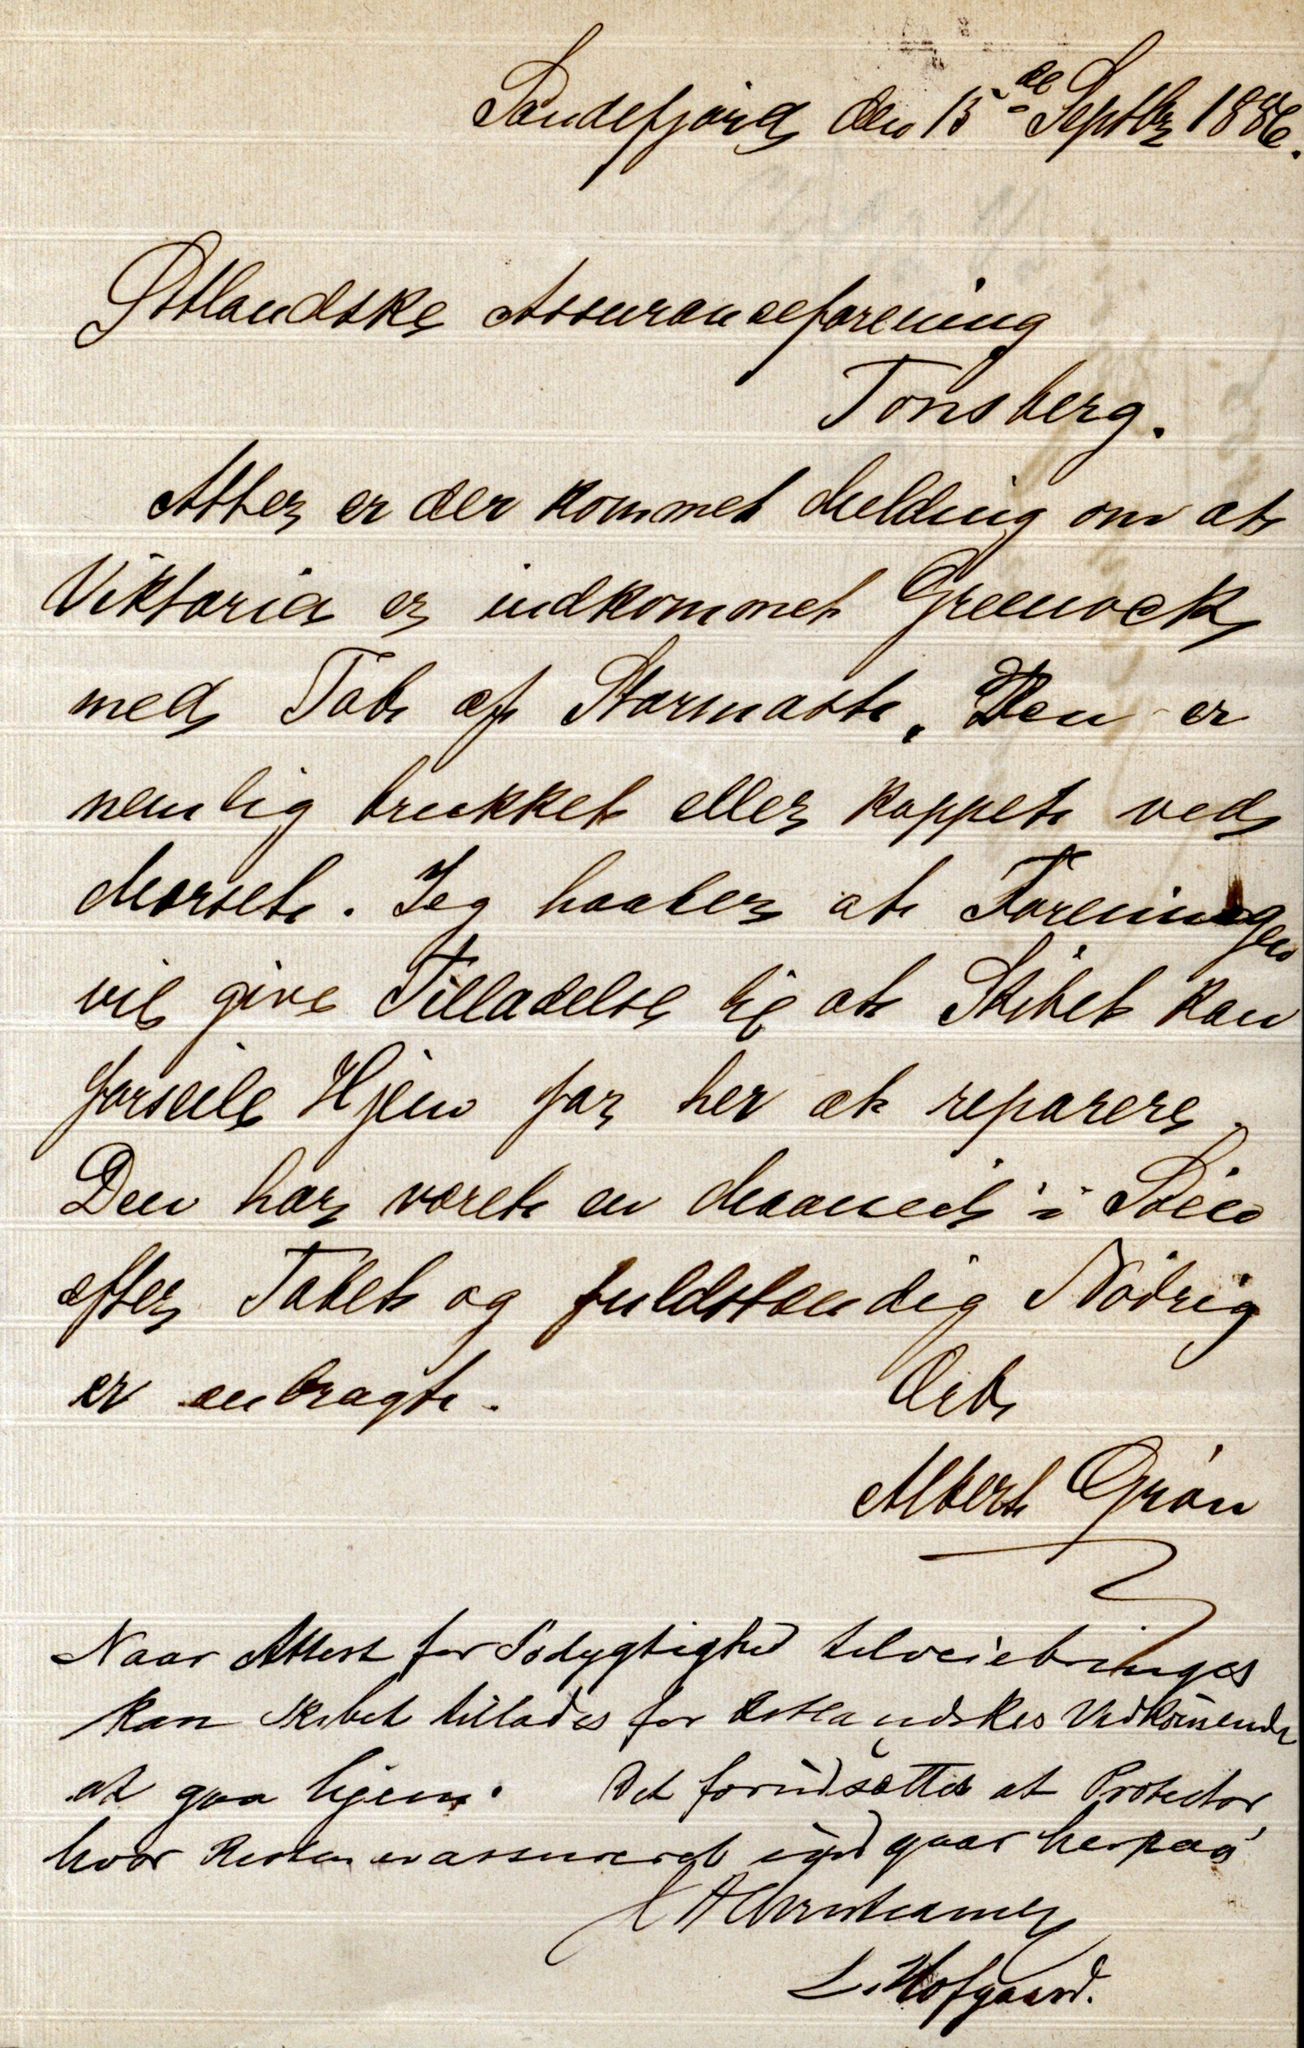 Sandefjord den 15de Septbr 1886.
Østlandske Assuranceforening
Tønsberg.
Atter er der kommet Melding om at
Viktoria er indkommet Greenock
med Tab af Stormast. Den er
nemlig brukket eller kappet ved
Merset. Jeg haaber at Foreningen
vil give Tilladelse til at Skibet kan
forseile Hjem for her at reparere.
Den har været en Maaned i Søen
efter Tabet og fuldstændig Nødrig
er anbragt.
Ærb
Albert Grøn
Naar Attest for Sødygtighed tilveiebringes
kan Skibet tillades for Østlandskes Vedkommende
at gaa hjem. Det forudsættes at Protector
hvor Resten er assureret indgaar herpaa
Christiansen
L. Hofgaard.